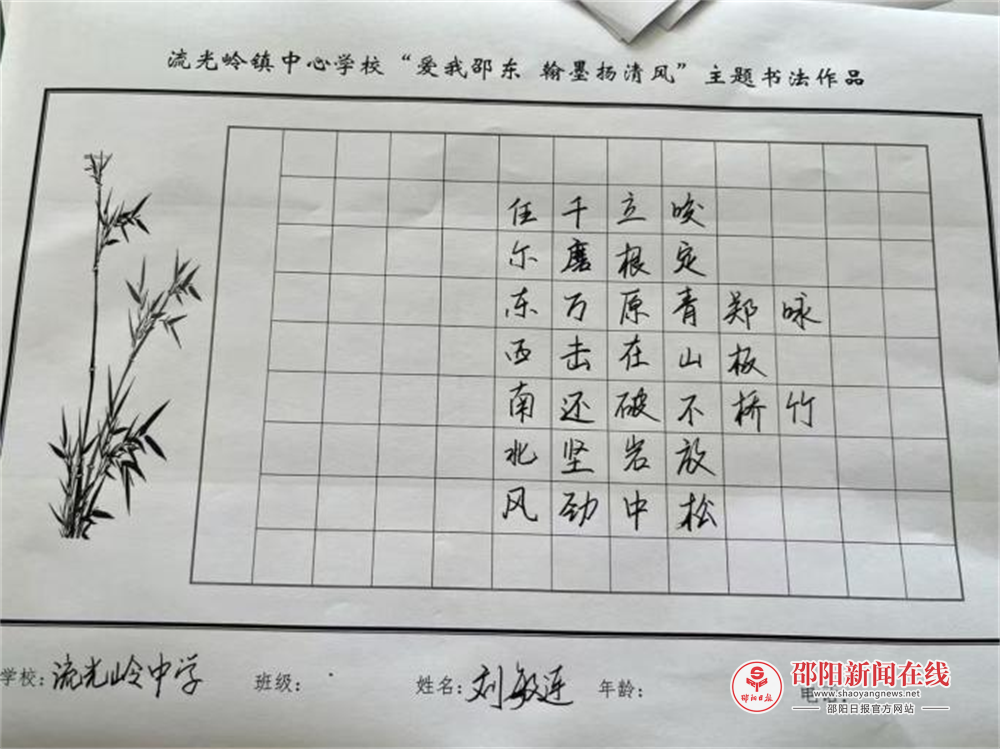 流光岭镇中心学校“爱我邵东 翰墨扬清风”主题书法作品
咏竹
郑板桥
咬定青山不放松
立根原在破岩中
千磨万击还坚劲
任尔东西南北风
学校:流光岭中学 班级: 姓名:刘敏连 年龄:
邵阳新闻在线
www.shaoyangnews.net
邵阳日报官方网站
邵阳日报